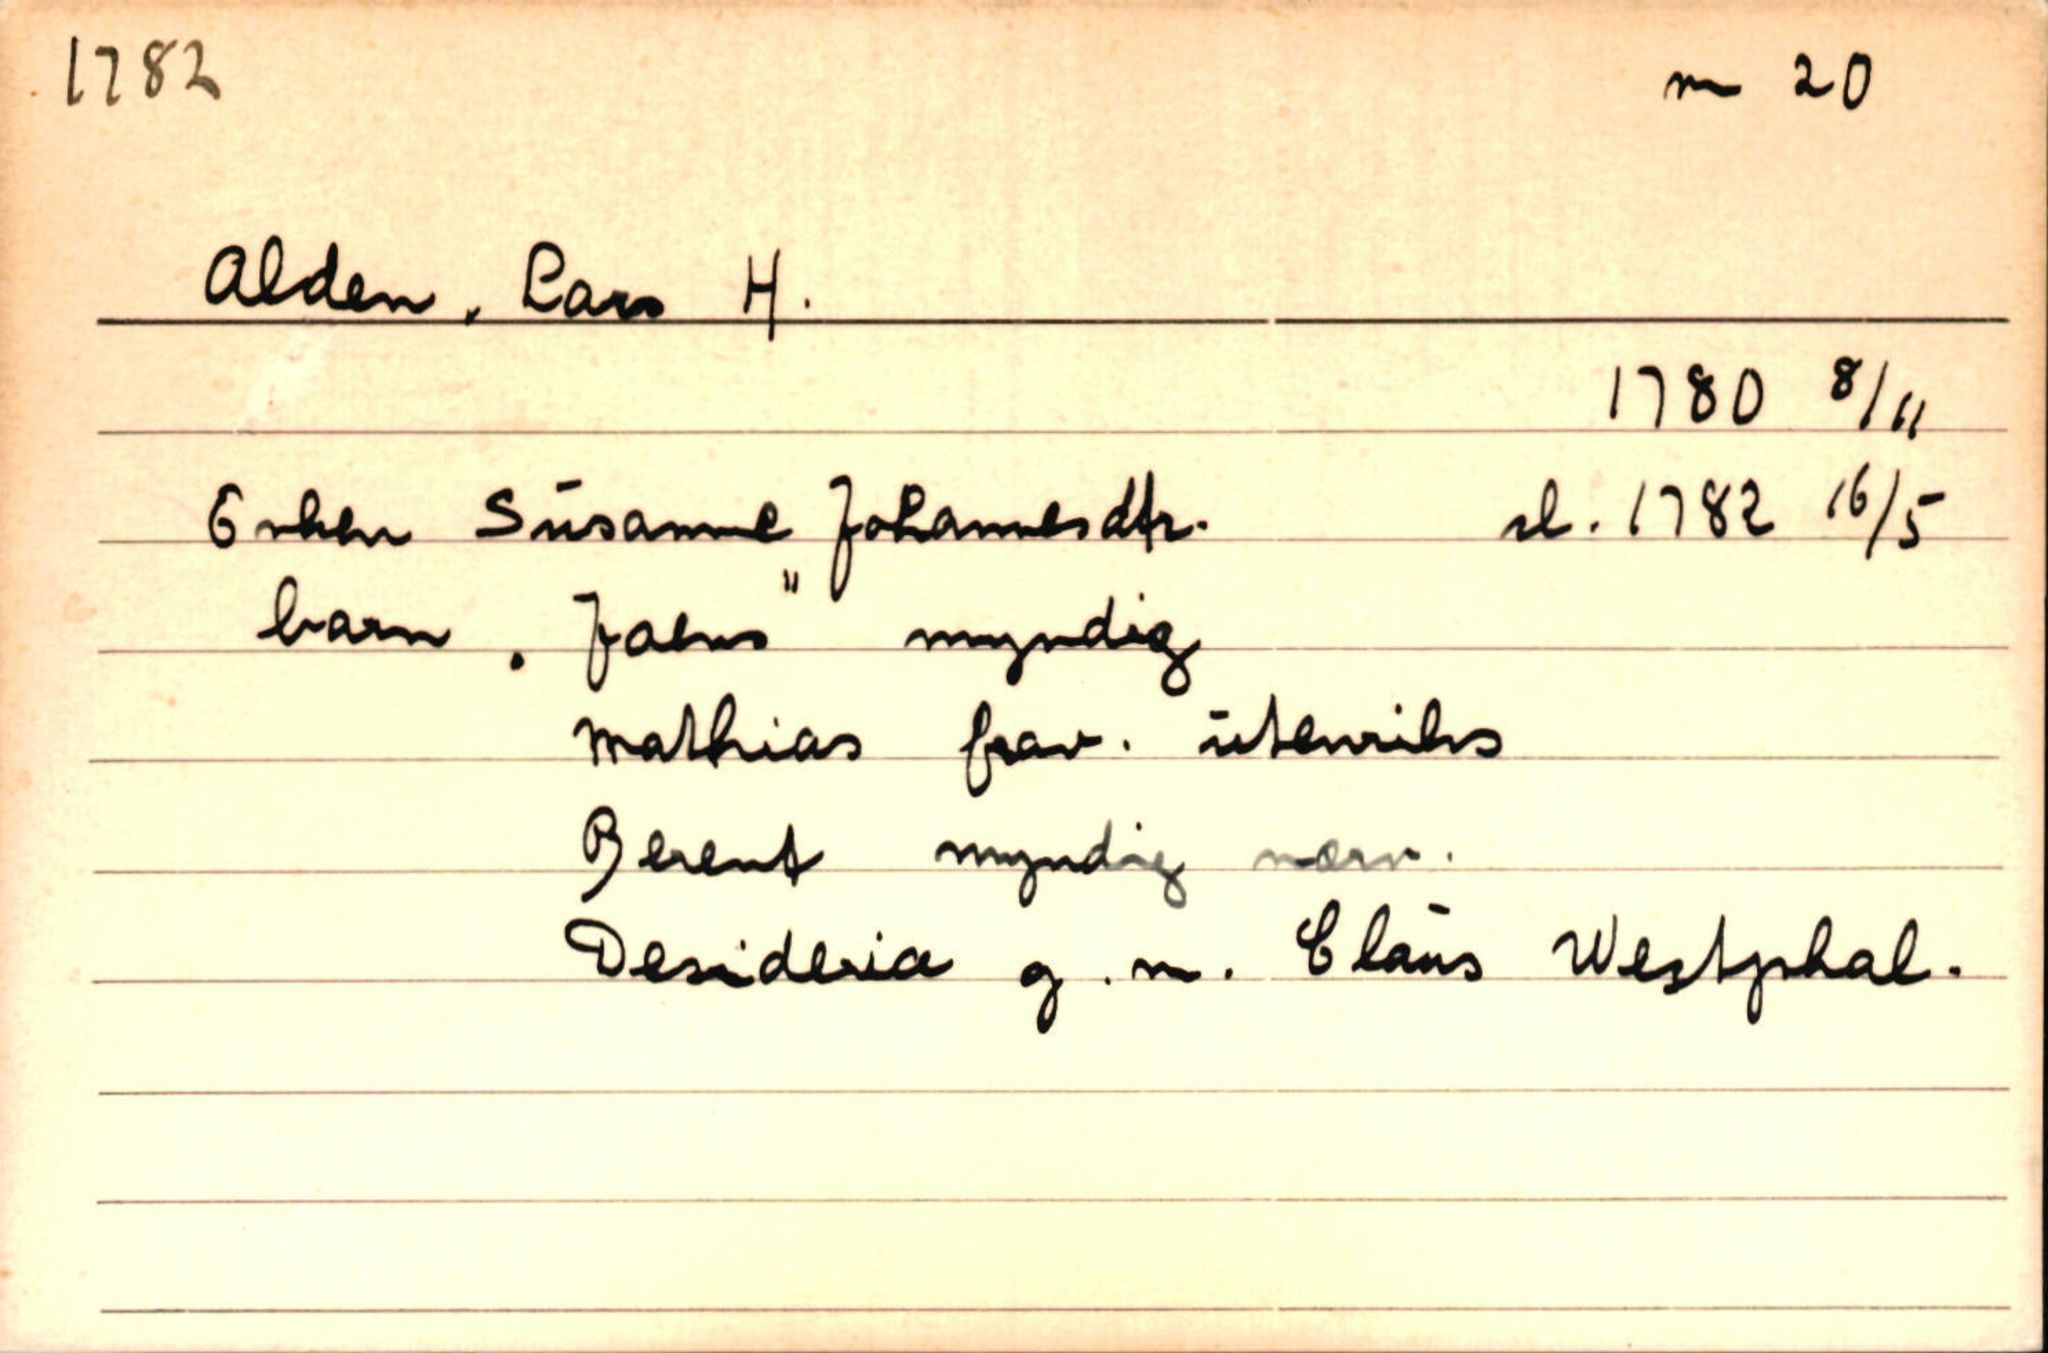 1782 m 20
Alden, Lars H.
1780 8/11
Enken Susanne Johannesdtr. sl. 1782 16/5
barn, "Jaens" myndig
Mathias frav. utenriks
Berent myndig nærv.
Desideria g.m. Claus Westphal.